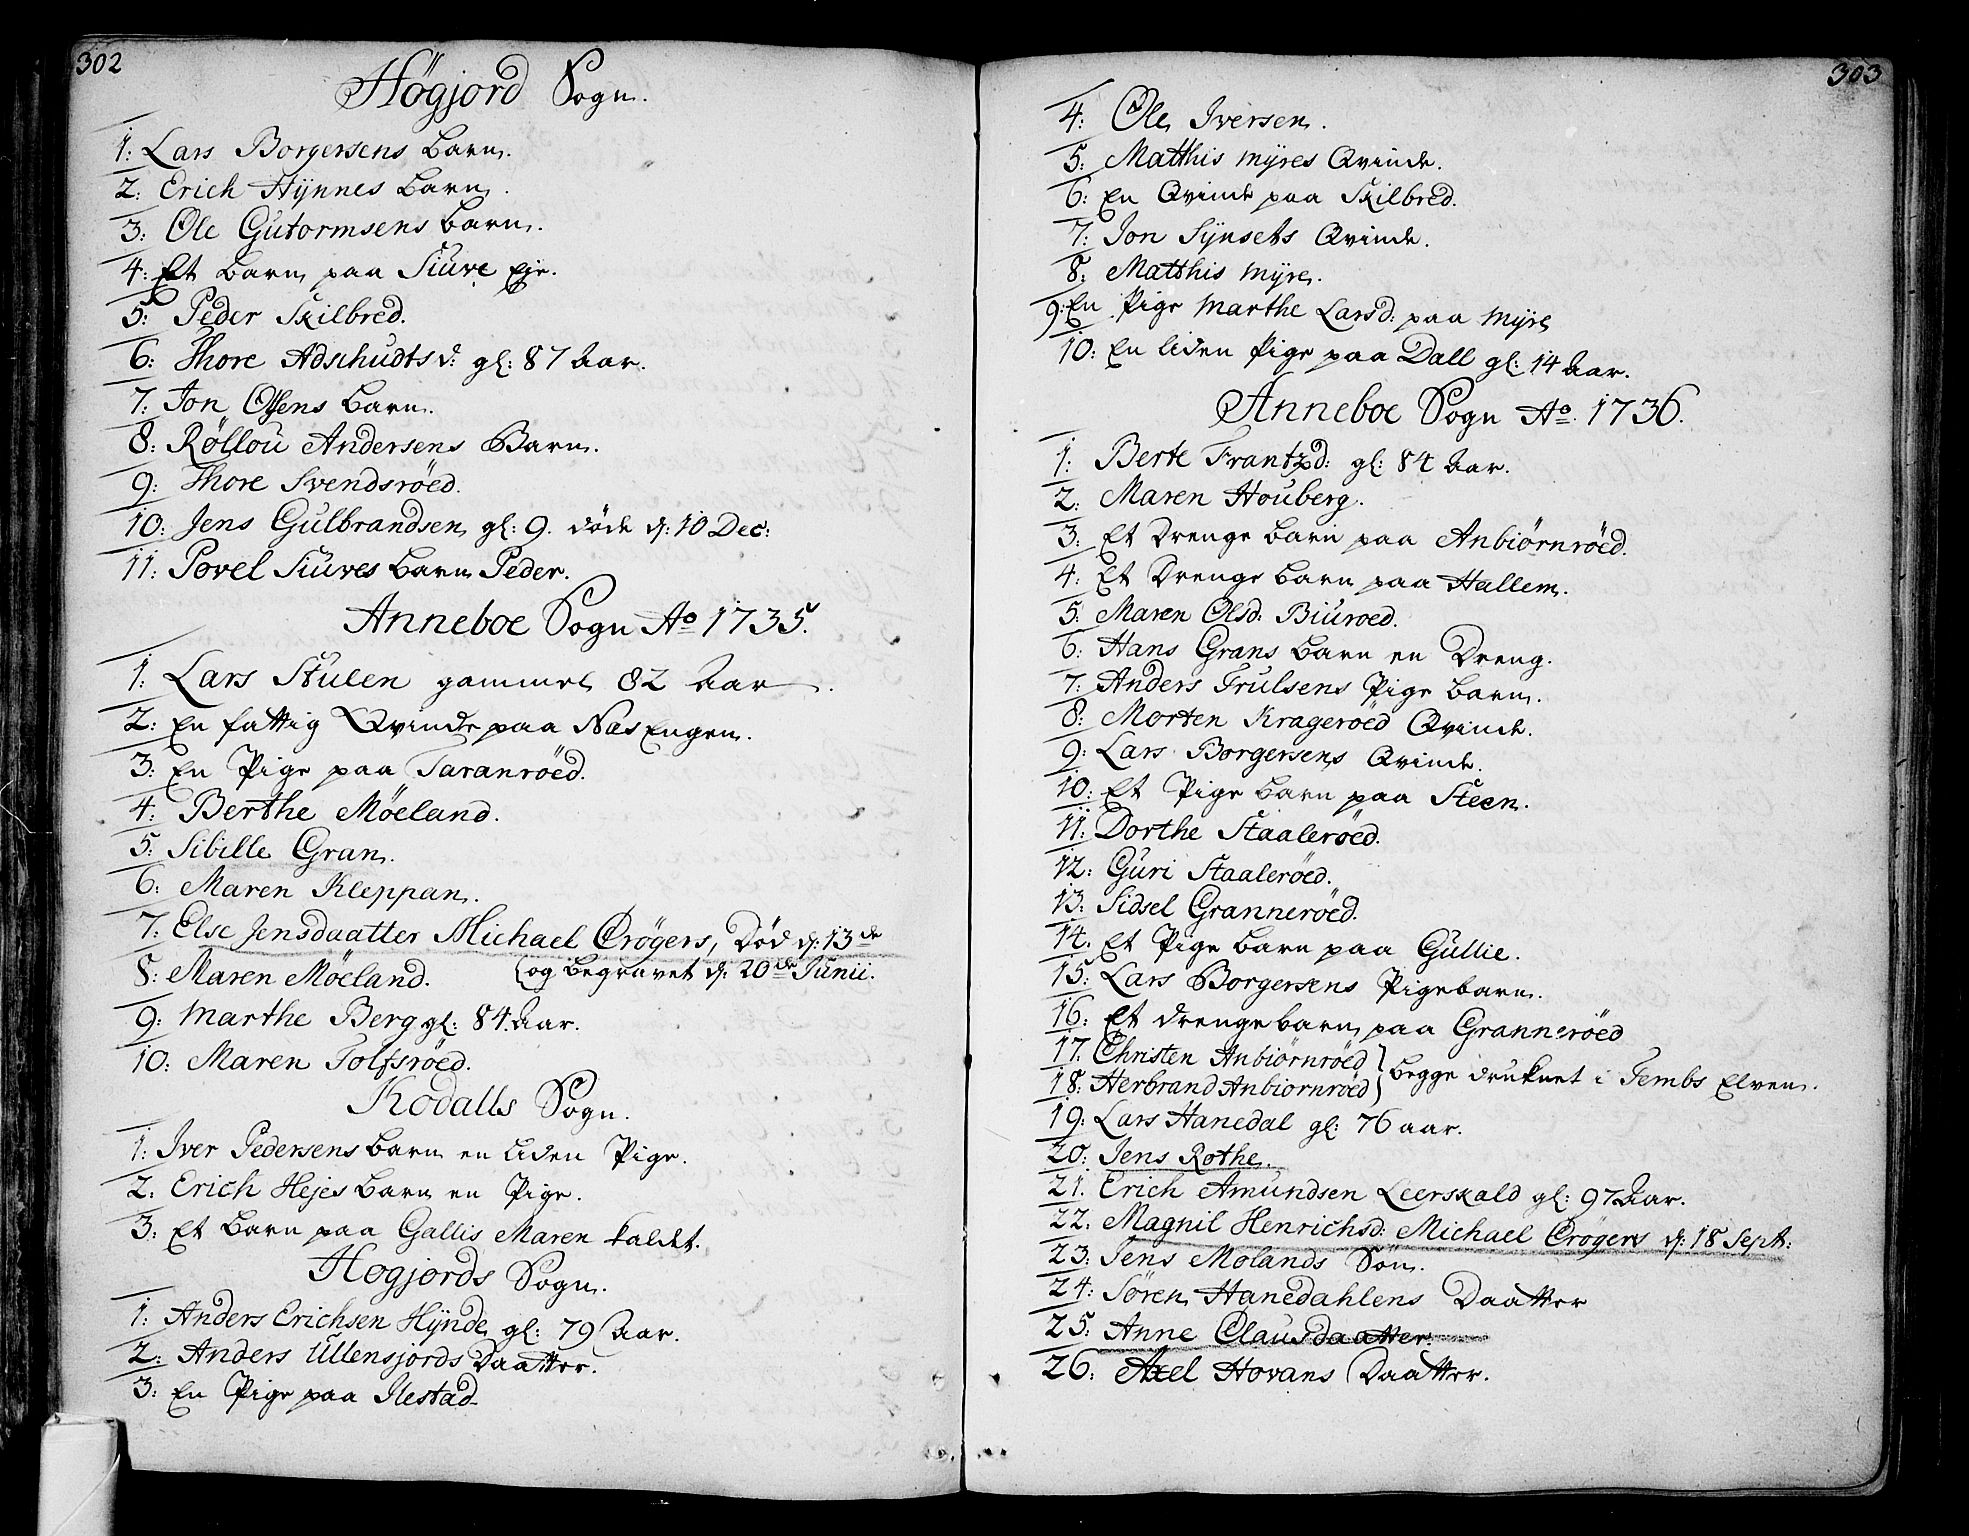 302
Högjord Sogn.
1: Lars Borgersens barn.
2: Erich Hÿnnes barn.
3: Ole Gutormsens barn.
4: Et barn paa Siuve Eje.
5: Peder Skilbred.
6: Thore Adschudtsd: gl: 87 Aar.
7: Jon Olsens barn.
8: Röllou Andersens Barn.
9: Thore Svendsröed.
10: Jens Gulbrandsen gl: 9. döde d: 10 Dec:
11: Povel Siuves barn Peder.
Anneboe Sogn Ao 1735.
1: Lars Stulen gammel 82 Aar.
2: En fattig Qvinde paa Næs Engen.
3: En Pige paa Taranröed.
4: Berthe Möeland.
5: Sibille Gran.
6: Maren Kleppan.
7: Else Jensdaatter Michael Crögers, Död d: 13de
8: Maren Möeland. og begravet d: 20de Junii.
9: Marthe Berg gl: 84. Aar.
10: Maren Tolfsröed.
Kodalls Sogn.
1: Iver Pedersens barn en liden Pige.
2: Erich Hejes barn en Pige.
3: Et barn paa Gallis Maren kaldet.
Hogjords Sogn.
1: Anders Erichsen Hÿnde gl: 79 Aar.
2: Anders Ullensjords Daatter.
3: En Pige paa Ilestad
303
4: Ole Iversen.
5: Matthis Mÿres Qvinde.
6: En Qvinde paa Skilbred.
7: Jon Sÿnsets Qvinde.
8: Matthis Mÿre.
9: En Pige Marthe Larsd: paa Mÿre
10: En liden Pige paa Dall gl: 14 Aar.
Anneboe Sogn Ao 1736.
1: Berte Frantzd: gl: 84 Aar.
2: Maren Houberg.
3: Et Drenge barn paa Anbiörnröed.
4: Et Drenge barn paa Hallem.
5: Maren Olsd: Biuroed.
6: Hans Grans barn en Dreng.
7: Anders Trulsens Pige barn.
8: Morten Krageröed Qvinde.
9: Lars Borgersens Qvinde.
10: Et Pige barn paa Steen.
11: Dorthe Staaleröed.
12: Guri Staaleröed.
13: Sidsel Granneröed.
14. Et Pige barn paa Gullie.
15: Lars Borgersens Pigebarn.
16: Et drengebarn paa Granneröed
17. Christen Anbiörnröed } begge druknet i Tembs Elven.
18: Herbrand Anbiornröed
19: Lars Hanedal gl: 76 aar.
20: Jens Rothe.
21. Erich Amundsen Leerskald gl: 97 Aar.
22: Magnil Henrichsd: Michael Crögers d: 18 Sept:
23: Jens Molands Sön.
24: Sören Hanedahlens Daatter
25: Anne Clausdaatter.
26: Axel Hovans Daatter.